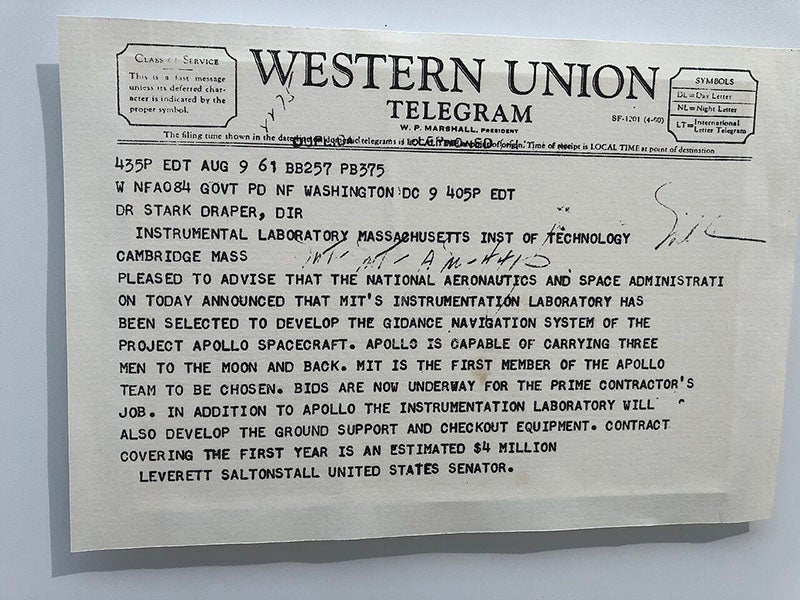 CLASS OF SERVICE
This is a fast message
unless its deferred char-
acter is indicated by the
proper symbol.
WESTERN UNION
TELEGRAM
W. P. MARSHALL, PRESIDENT
SF-1201 (4-60)
SYMBOLS
DL=Day Letter
NL=Night Letter
LT=International
Letter Telegram
The filing time shown in the date telegrams is LOCAL TIME at point of origin. Time of receipt is LOCAL TIME at point of destination
435P EDT AUG 9 61 BB257 PB375
W NFA084 GOVT PD NF WASHINGTON DC 9 405P EDT
DR STARK DRAPER, DIR
INSTRUMENTAL LABORATORY MASSACHUSETTS INST OF TECHNOLOGY
CAMBRIDGE MASS
PLEASED TO ADVISE THAT THE NATIONAL AERONAUTICS AND SPACE ADMINISTRATI
ON TODAY ANNOUNCED THAT MIT'S INSTRUMENTATION LABORATORY HAS
BEEN SELECTED TO DEVELOP THE GIDANCE NAVIGATION SYSTEM OF THE
PROJECT APOLLO SPACECRAFT. APOLLO IS CAPABLE OF CARRYING THREE
MEN TO THE MOON AND BACK. MIT IS THE FIRST MEMBER OF THE APOLLO
TEAM TO BE CHOSEN. BIDS ARE NOW UNDERWAY FOR THE PRIME CONTRACTOR'S
JOB. IN ADDITION TO APOLLO THE INSTRUMENTATION LABORATORY WILL
ALSO DEVELOP THE GROUND SUPPORT AND CHECKOUT EQUIPMENT. CONTRACT
COVERING THE FIRST YEAR IS AN ESTIMATED $4 MILLION
LEVERETT SALTONSTALL UNITED STATES SENATOR.